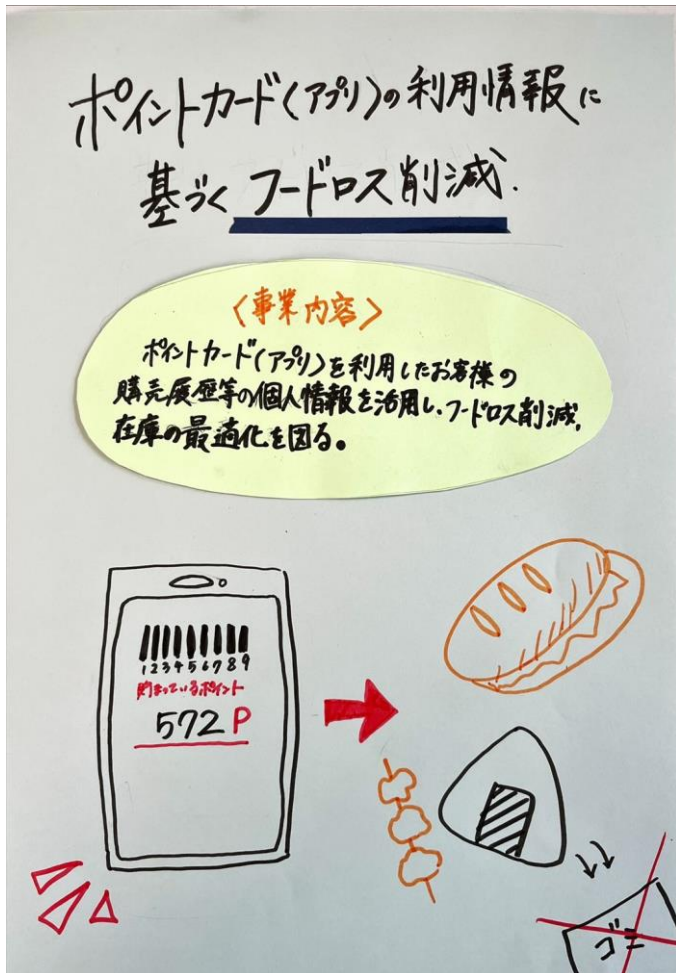 ポイントカード(アプリ)の利用情報に
基づくフードロス削減.
<事業内容>
ポイントカード(アプリ)を利用したお客様の
購売履歴等の個人情報を活用し、フードロス削減,
在庫の最適化を図る。
123456789
貯まっているポイント
572P
ゴミ